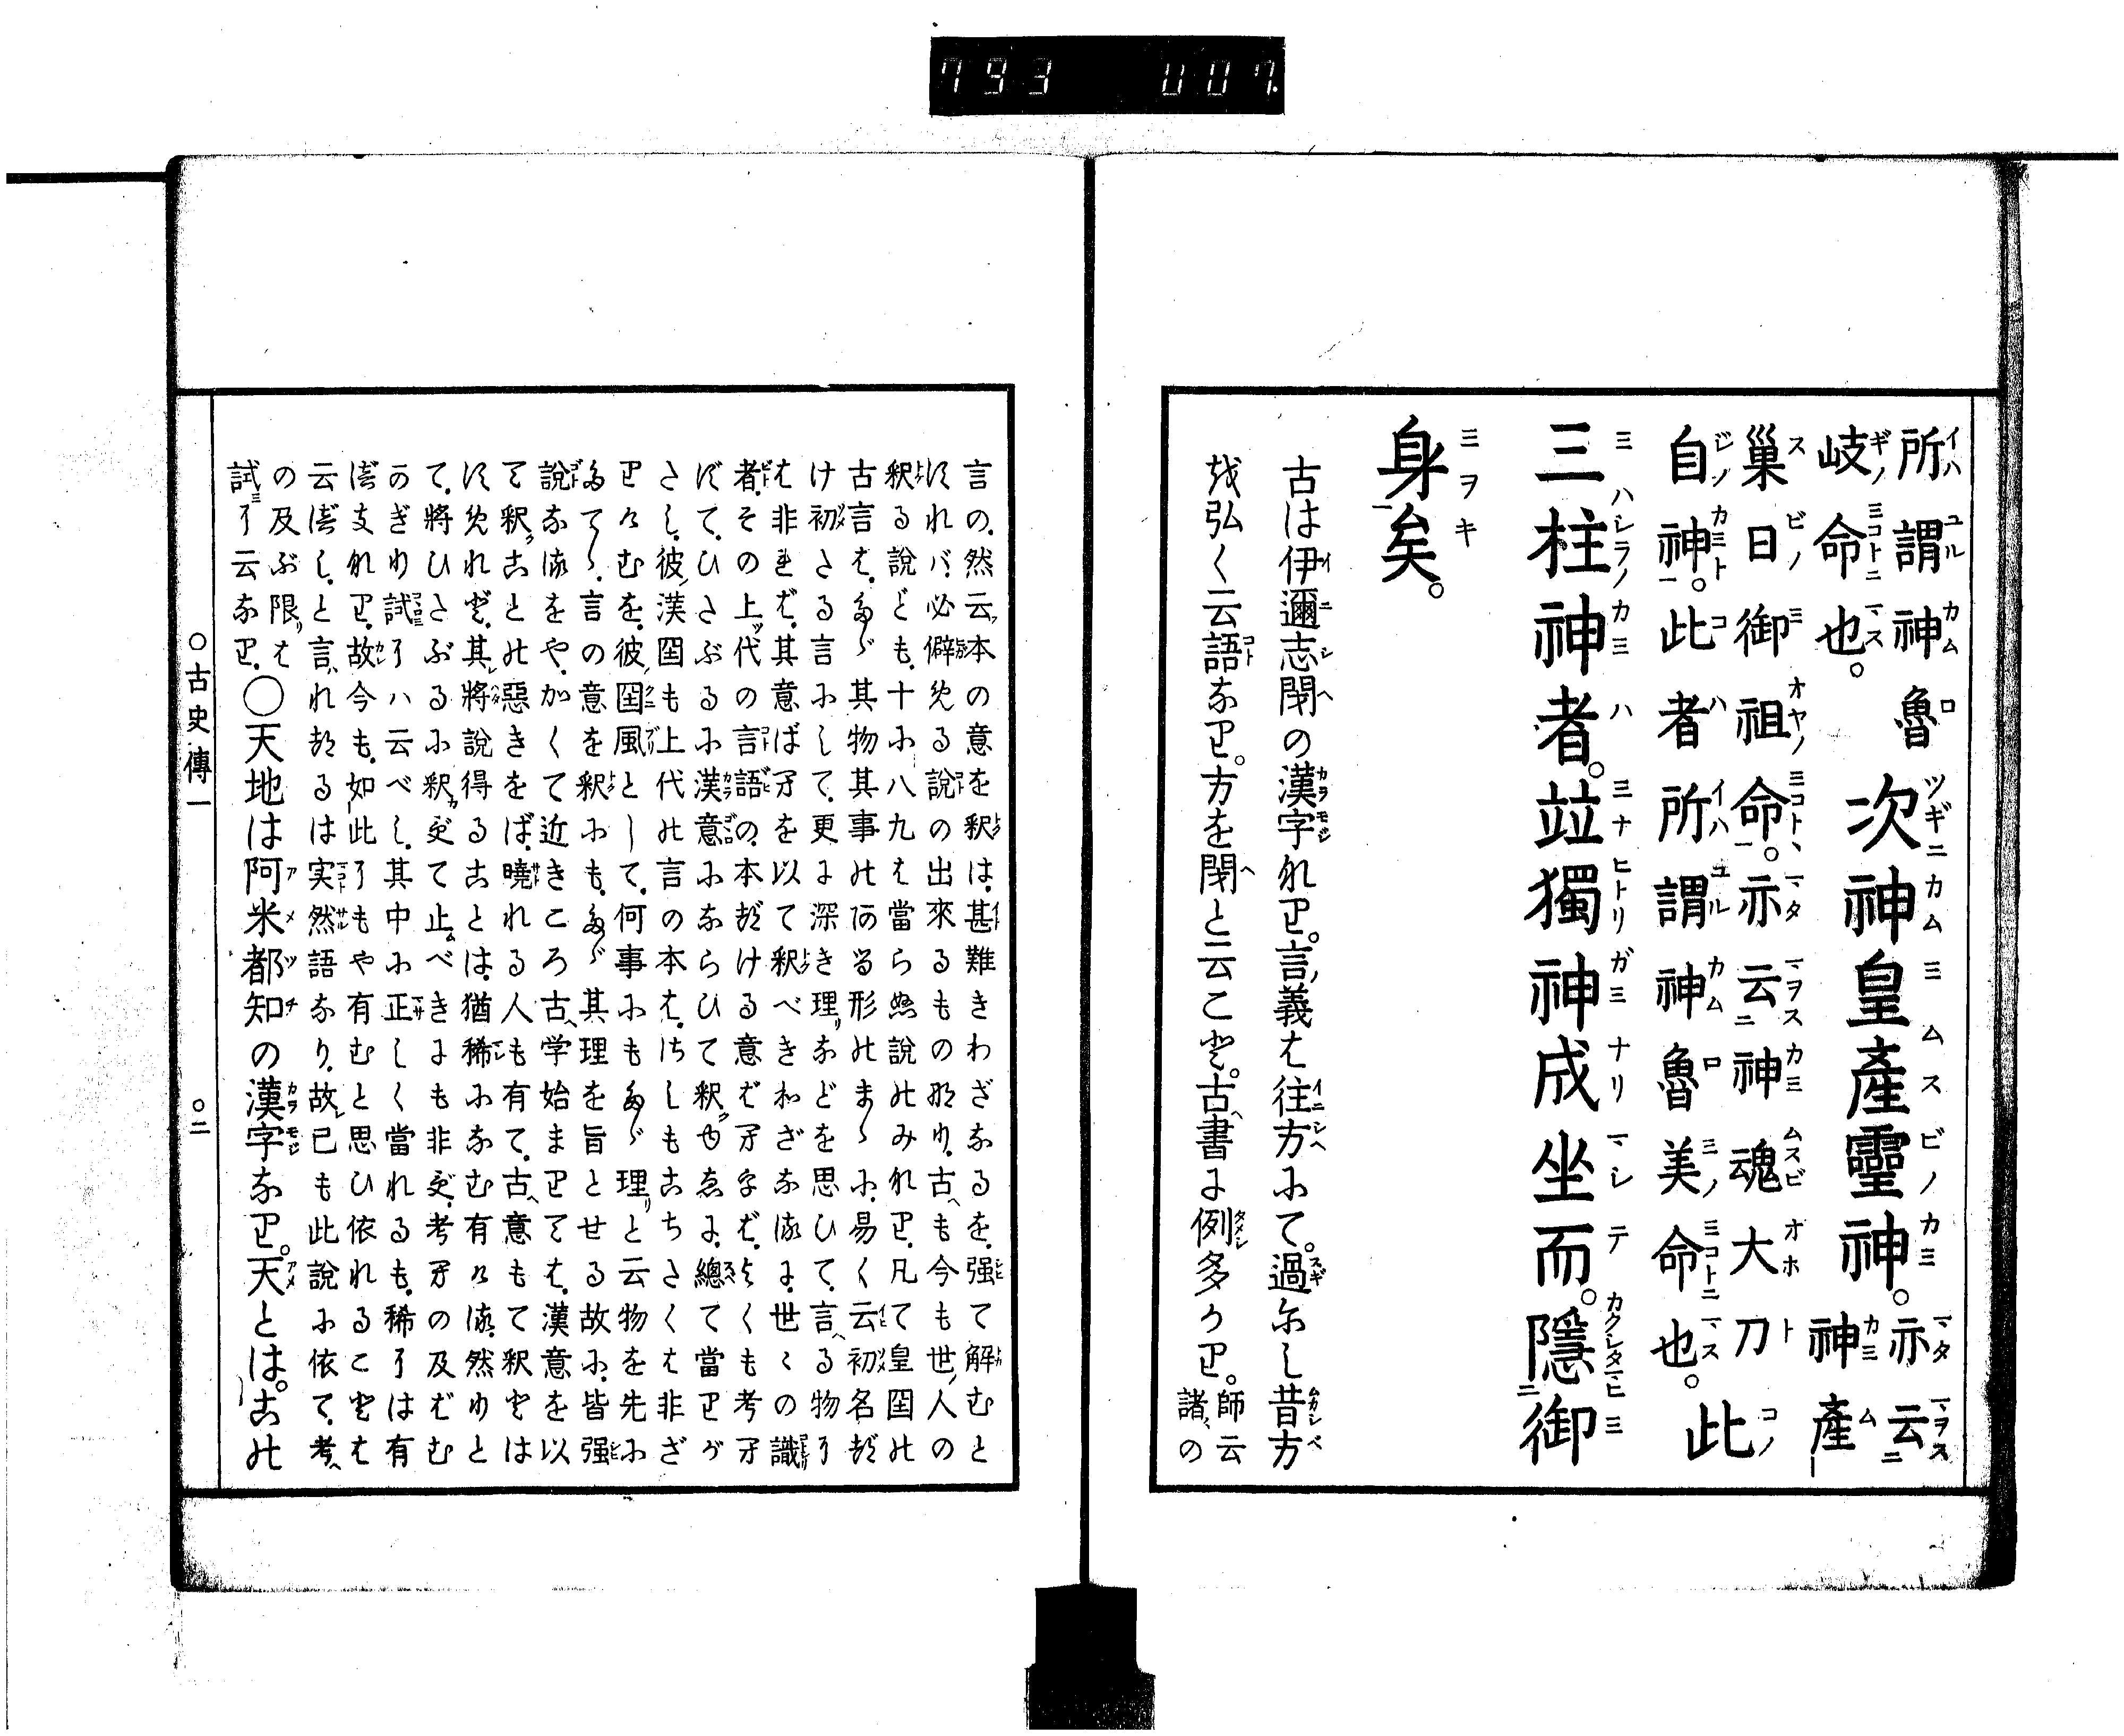 793 007.
所謂神魯
岐命也。
次神皇產靈神。
亦云
神產
巢日御祖命。亦云神魂大刀
自神。此者所謂神魯美命也。
此
三柱神者。竝獨神成坐而。隱御
身矣。
古は伊邇志閇の漢字なり。言義は往方にて。過にし昔方
を弘く云語なり。方を閇と云こと。古書に例多かり。
師云
諸の
言の。然云本の意を釈は。甚難きわざなるを。强て解むと
すれバ。必僻める說の出來るものなり。古も今も世人の
釈る說ども。十に八九は當らぬ說のみなり。凡て皇国の
古言は。たゞ其物其事のある形のまゝに。易く云初名づ
け初たる言にして。更に深き理などを思ひて。言る物に
は非れば。其意ばへを以て釈べきわざなるに。世〻の識
者。その上代の言語の。本づける意ばへをば。よくも考へ
ずて。ひたぶるに漢意にならひて釈ゆゑに。總て當りが
たし。彼漢国も上代の言の本は。さしもこちたくは非ざ
りけむを。彼国風として。何事にもたゞ理と云物を先に
たてゝ。言の意を釈にも。たゞ其理を旨とせる故に。皆强
說なるをや。かくて近きころ古学始まりては。漢意を以
て釈ことの惡きをば。曉れる人も有て。古意もて釈とは
すめれど。其將說得ることは。猶稀になむ有ける。然りと
て。將ひたぶるに釈ずて止べきにも非ず。考への及ばむ
かぎり試には云べし。其中に正しく當れるも。稀には有
ぬべきなり。故今も。如此にもや有むと思ひ依れること
云べし。と言れたるは実然語なり。故己も此說に依て。考
の及ぶ限は
試に云なり。〇天地は阿米都知の漢字なり。天とは。この
〇古史傳一 〇二